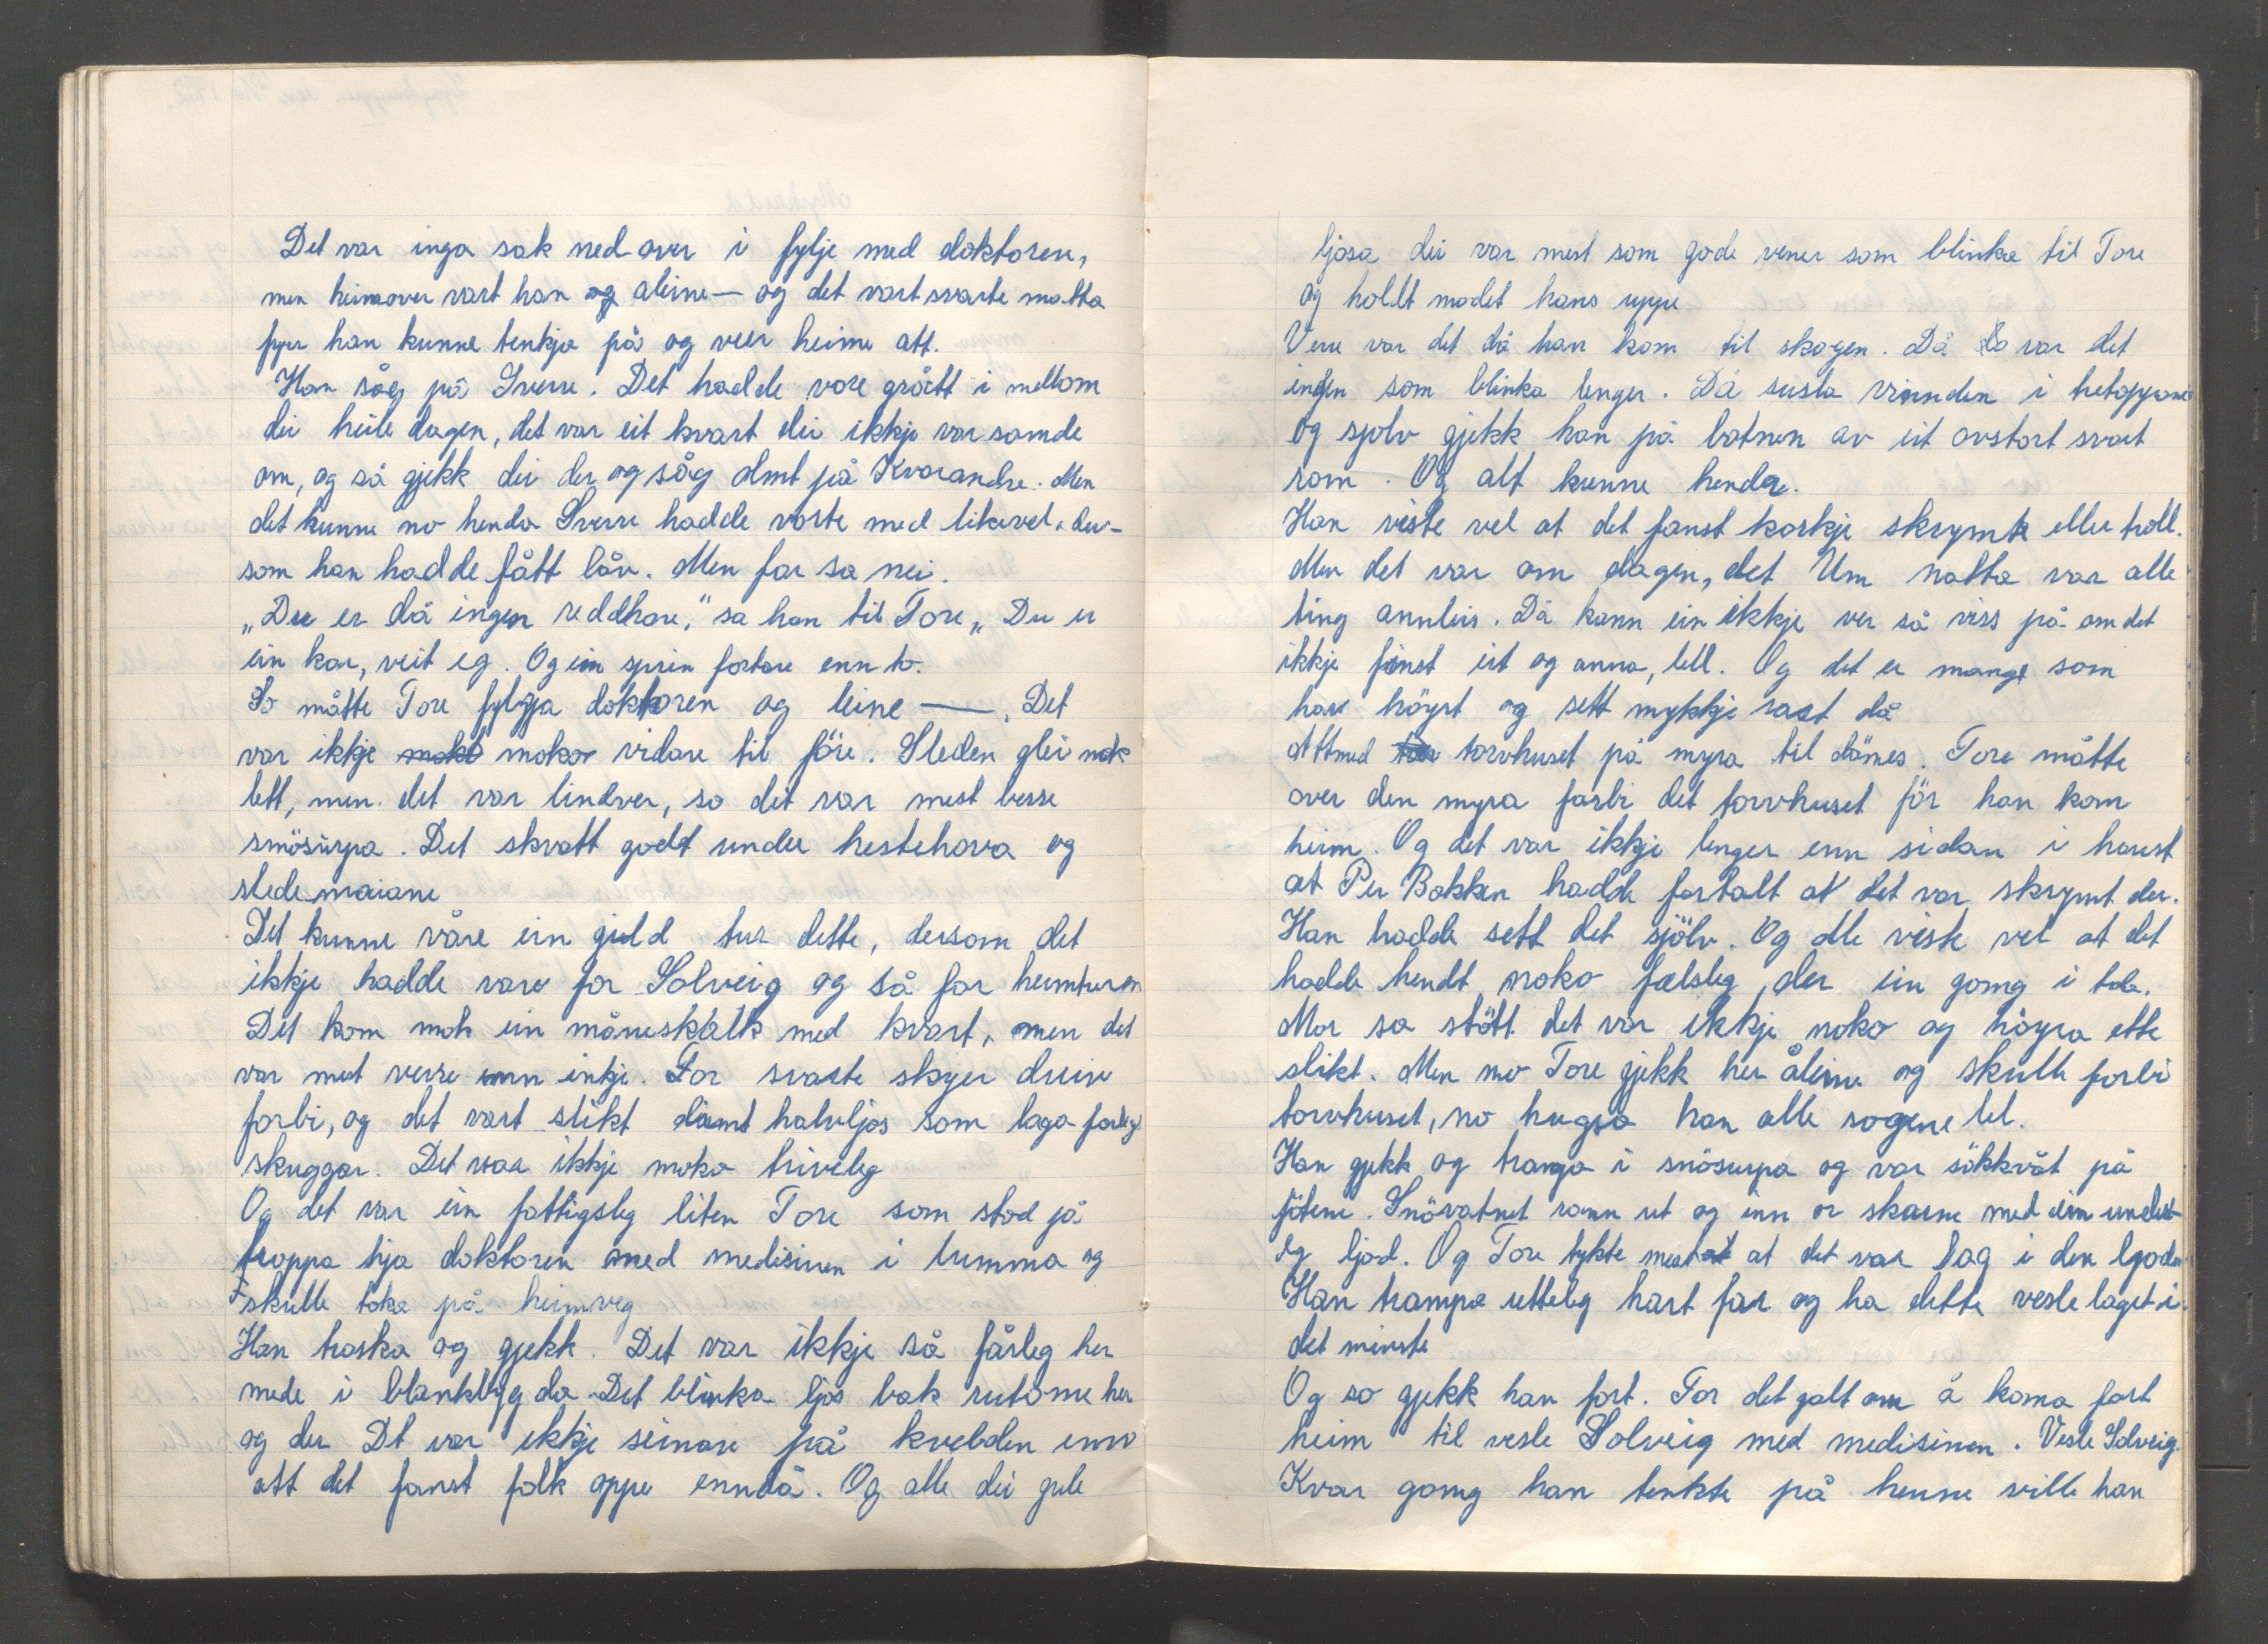 Det var inga sak ned over i fylje med doktoren,
men heimover vart han og aleine — og det vart svarte natta
fyrr han kunne tenkja på og veer heime att.
Han såg på Sverre. Det hadde vore grått i mellom
dei heile dagen, det var eit kvart dei ikkje var samde
om, og så gjekk dei der og såg olmt på Kvarandre. Men
det kunne no henda Sverre hadde vorte med likevel, der-
som han hadde fått låv. Men far sa nei.
„Du er då ingen reddhare," sa han til Tore „Du er
ein kar, veit eg. Og ein sprin fortare enn to.
So måtte Tore fylgja doktoren og leine —. Det
var ikkje noko vidare til före. Sleden glei nok
lett, men det var lindver, so det var mest berre
snösürpa. Det skvatt godt under hestehova og
stedemaiane
Det kunne våre ein guld tur dette, dersom det
ikkje hadde vore for Solveig og så for heimturen
Det kom nok ein måneskalk med kvart, men det
var mest verre enn inkje. For svarte skyer dreiv
forbi, og det vart slikt dåmt halvljos som laga farleg
skuggar. Det var ikkje noko triveleg
Og det var ein fattigsleg liten Tore som stod på
troppa hja doktoren med medisinen i lumma og
skulle toka på heimveg
Han traska og gjekk. Det var ikkje så fårleg her
nede i blankbygda. Det blinka ljos bak rutome her
og der Dt var ikkje seinare på kvelden enn
att det fanst folk oppe enndå. Og alle dei gule
ljosa dei var mest som gode vener som blinka til Tore
og hollt modet hans uppe
Verre var det då han kom til skogen. Då so var det
ingen som blinka lenger. Då susla vinden i tretoppane
og sjolv gjekk han på botnen av eit ovstort svart
rom. Og alt kunne henda.
Han viste vel at det fanst korkje skrymt eller troll.
Men det var om dagen, det Um natta var alle
ting annleis. Då kann ein ikkje ver så viss på om det
ikkje finst eit og anna, lell. Og det er mange som
har höyrt og sett mykkje rart då
Attmed torvhuset på myra til dömes. Tore måtte
over den myra forbi det torvhuset för han kom
heim. Og det var ikkje lenger enn sidan i haust
at Per Bakken hadde fortalt at det var skrymt der.
Han hadde sett det sjölv. Og alle viste vel at det
hadde hendt noko fælsleg, der ein gomg i tda.
Mor sa stött det var ikkje noko og höyra ette
slikt. Men no Tore gjekk her åleine og skulle forbi
torvhuset, no hugsa han alle sogene lel.
Han gjekk og trampa i snösurpa og var sökkvåt på
fötene. Snövatnet rann ut og inn or skorne med ein under-
leg ljod. Og Tore tykte mest at det var lag i den ljoden
Han trampa retteleg hart for og ha dette vesle laget i
det minste
Og so gjekk han fort. For det galt om å koma fort
heim til vesle Solveig med medisinen. Vesle Solveig.
Kvar gomg han tenkte på henne ville han